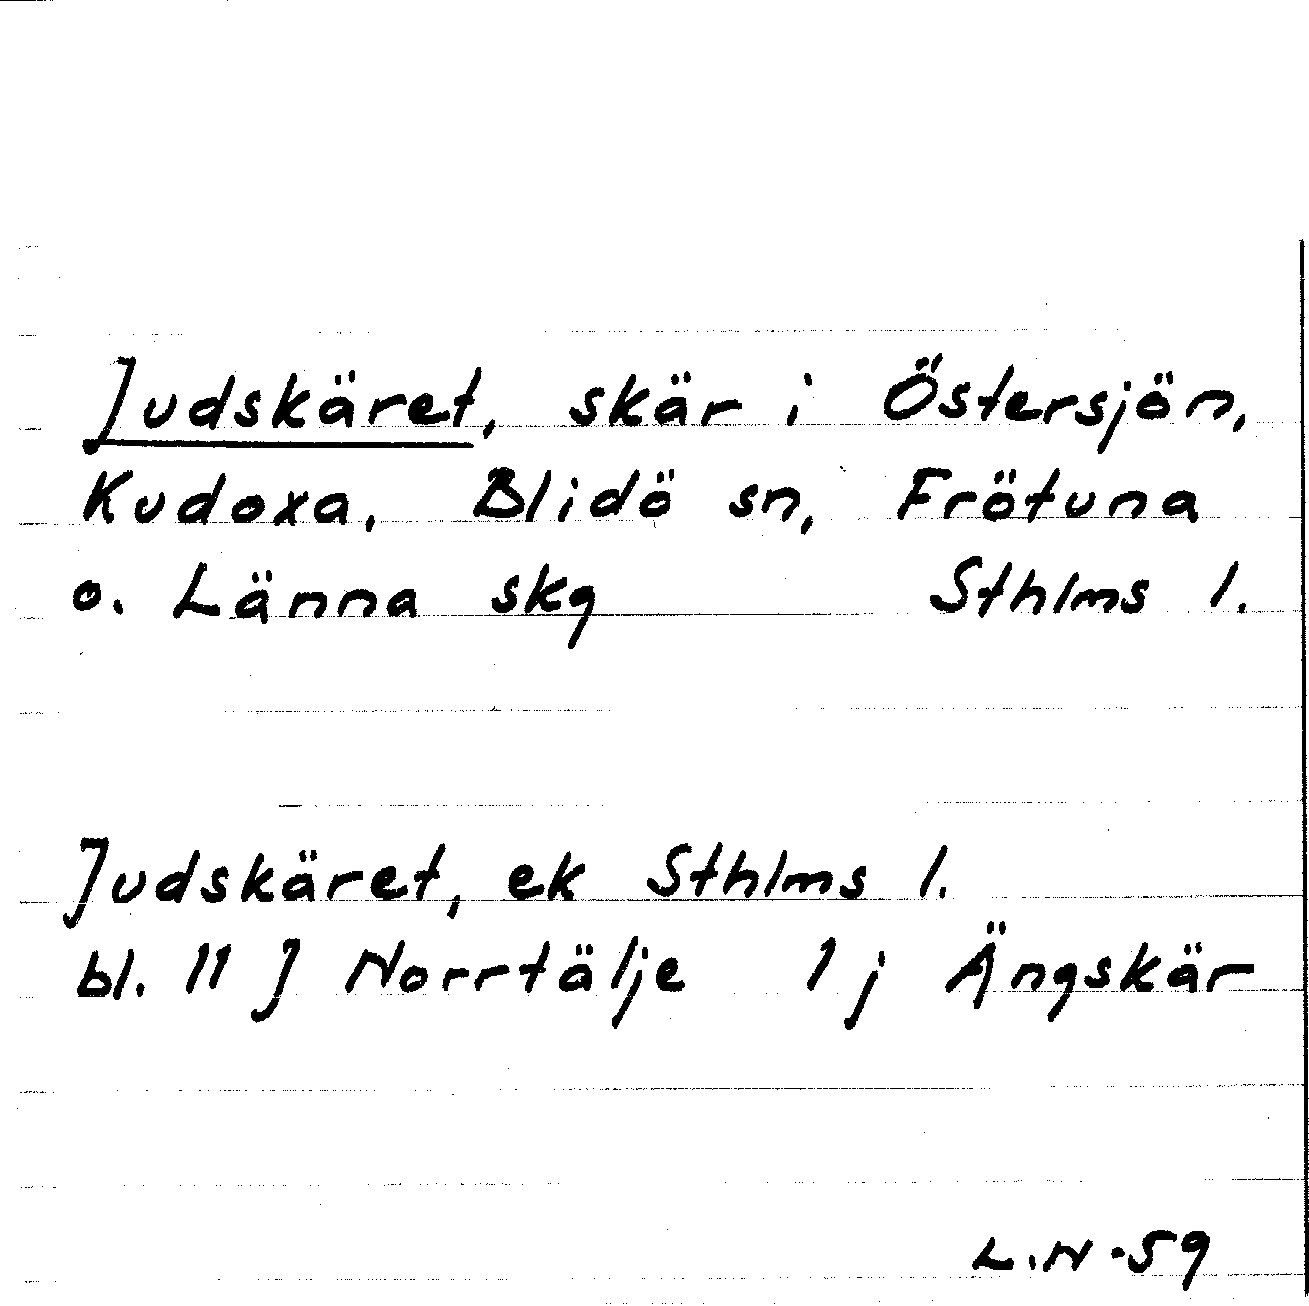 Judskäret, skär i Östersjön,
Kudoxa, Blidö sn, Frötuna
o. Länna skg Sthlms l.
Judskäret, ek Sthlms l.
bl. 11 J Norrtälje 1 j Ängskär
L.N-59